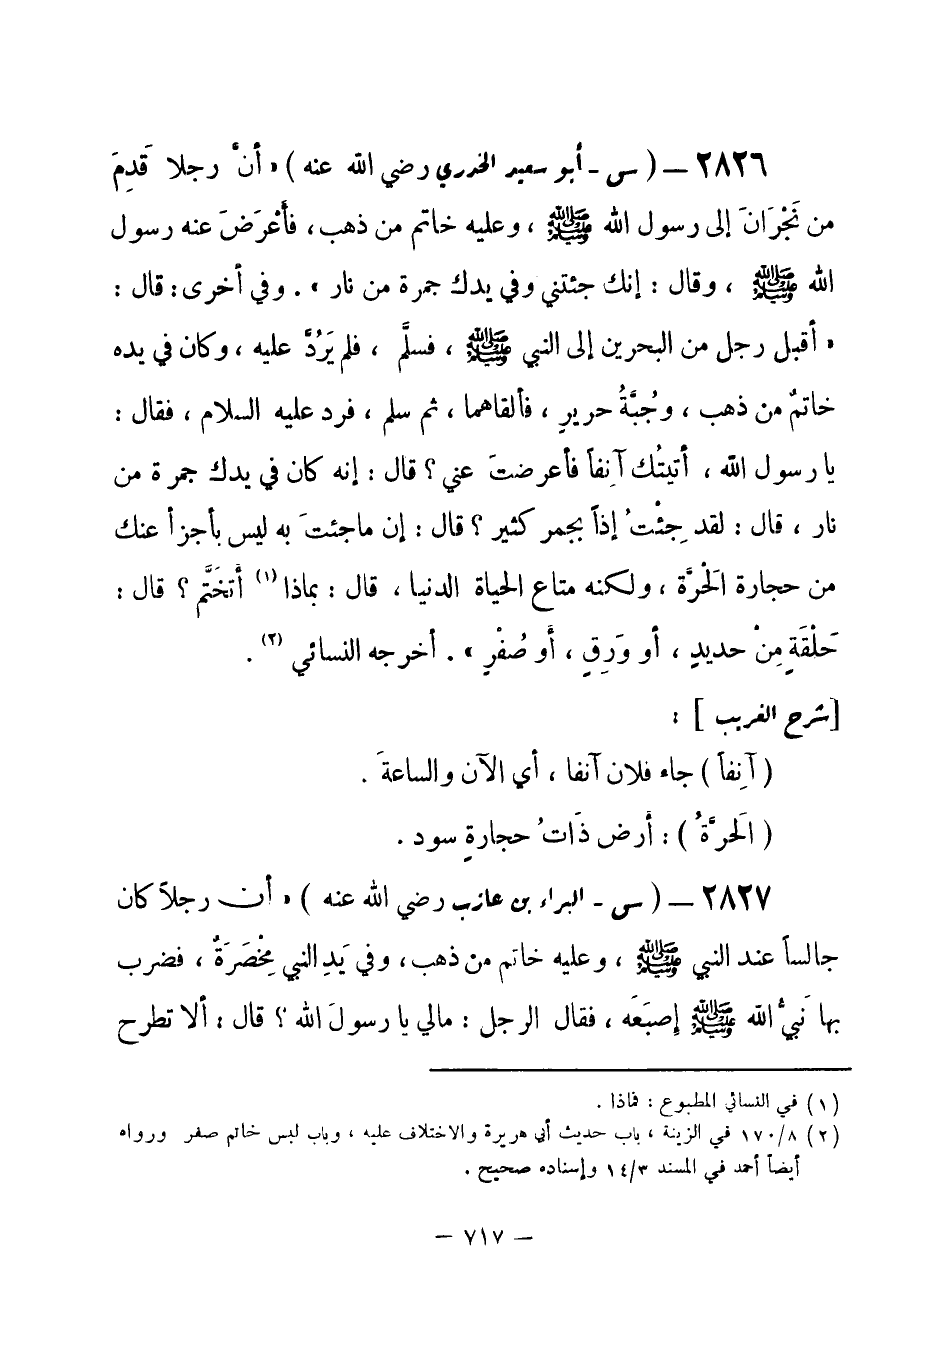 ٢٨٢٦ – ( س - أبو سعيد الخدري رضي الله عنه ) « أنَّ رجلا قَدِمَ
من نَجْرَانَ إلى رسول الله ﷺ ، وعليه خاتم من ذهب، فأَعْرَضَ عنه رسول
الله ﷺ ، وقال : إنك جئتني وفي يدك جمرة من نار » . وفي أخرى: قال :
« أقبل رجل من البحرين إلى النبي ﷺ ، فسلَّم ، فلم يَرُدَّ عليه ، وكان في يده
خاتمٌ من ذهب ، وجُبَّةُ حريرٍ ، فألقاهما ، ثم سلم ، فرد عليه السلام ، فقال :
يا رسول الله ، أتيتُك آنِفاً فأعرضتَ عني ؟ قال : إنه كان في يدك جمرة من
نار ، قال : لقد جِئْتُ إذاً بجمر كثير ؟ قال : إن ماجئتَ به ليس بأجزأ عنك
من حجارة الَحْرَّة ، ولكنه متاع الحياة الدنيا ، قال : بماذا (١) أَتَخَتَّم ؟ قال :
حَلْقَةٍ مِنْ حديدٍ ، أو وَرِقٍ ، أَو صُفْرٍ » . أخرجه النسائي (٢) .
[شرح الغريب ] :
( آنِفاً ) جاء فلان آنفا ، أي الآن والساعةَ .
( الَحرَّةُ ) : أرض ذَاتُ حجارةٍ سود .
٢٨٢٧ – ( س - البراء بن عازب رضي الله عنه ) « أن رجلاً كان
جالساً عند النبي ﷺ ، وعليه خاتم من ذهب، وفي يَدِ النبي مِخْصَرَةٌ ، فضرب
بها نَبيُّ الله ﷺ إصبَعَه ، فقال الرجل : مالي يا رسولَ الله ؟ قال : ألا تطرح
(١) في النسائي المطبوع : فماذا .
(٢) ١٧٠/٨ في الزينة ، باب حديث أبي هريرة والاختلاف عليه ، وباب لبس خاتم صفر ورواه
أيضاً أحمد في المسند ١٤/٣ وإسناده صحيح .
– ٧١٧ –